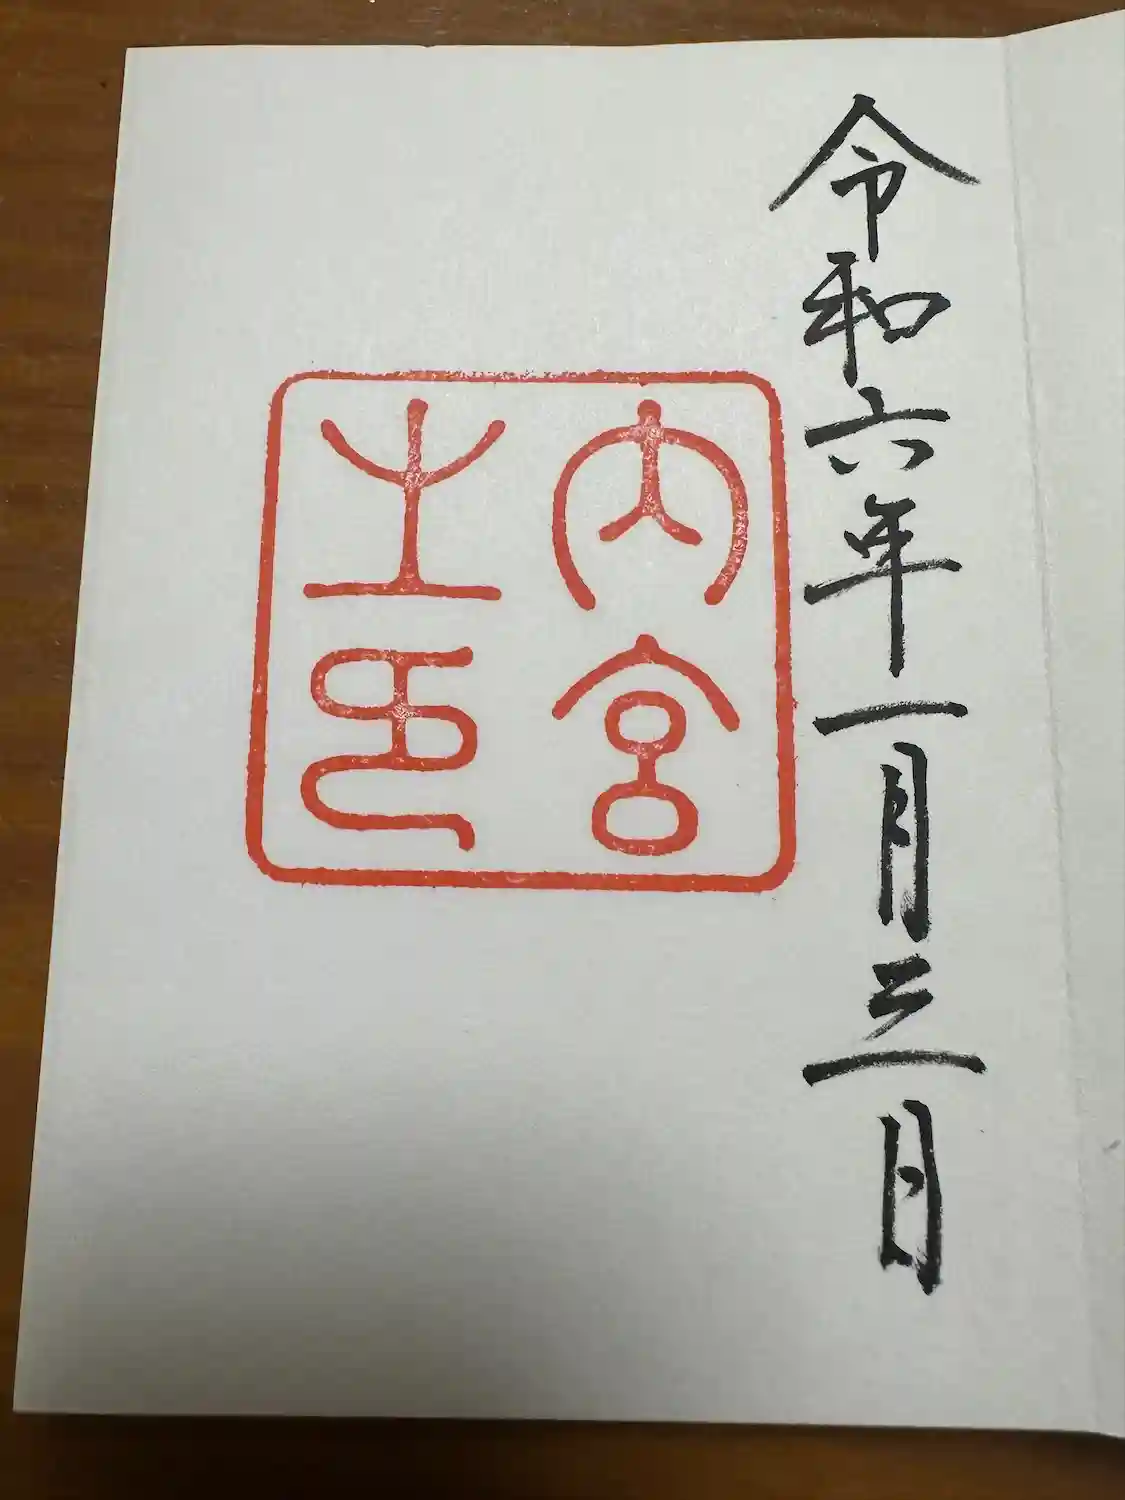 令和六年一月三日
内宮
之印